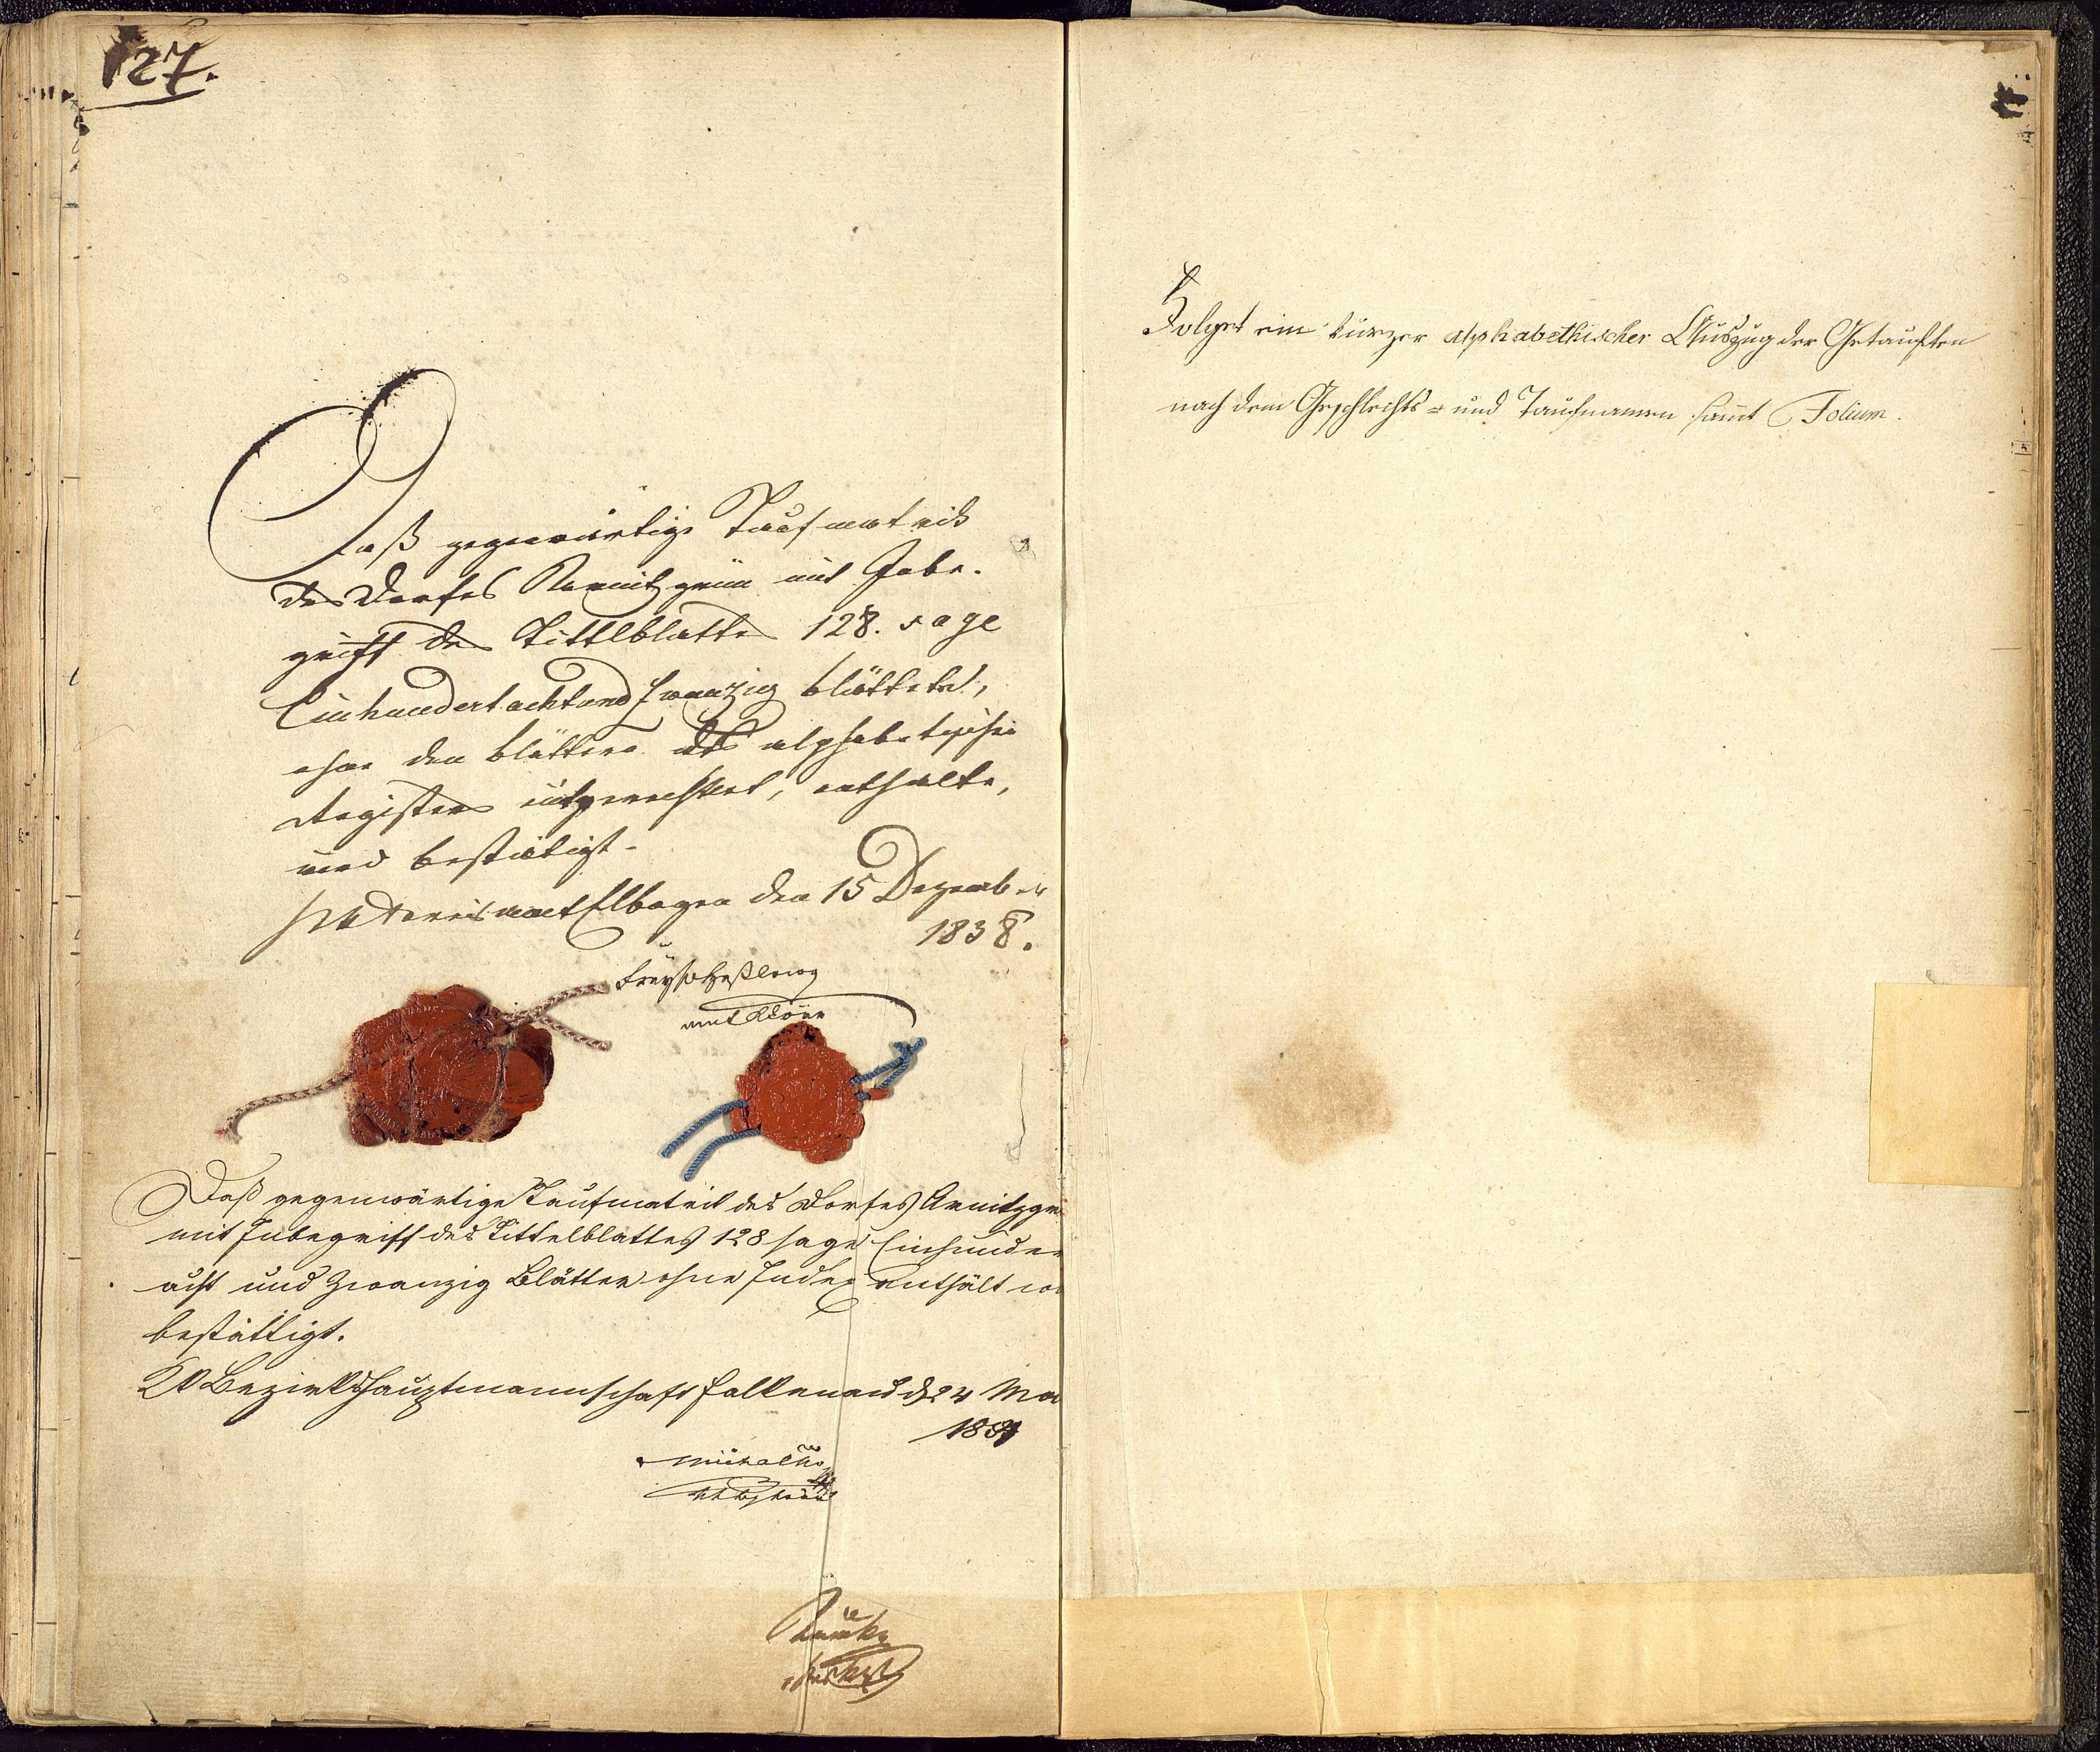 127.
Daß gegenwärtige Taufmatrik
des Dorfes Arnitzgrün mit Inbe-
griff des Tittlblattes 128. sage
Einhundertachtundzwanzig Blätter,
ohne den Blättern des alphabetischen
Registers enthalte,
wird bestätigt.
Kreisamt Elbogen den 15 Dezember
1838.
Daß gegenwärtige Taufmatrik des Dorfes Arnitzgr
mit Inbegriff des Tittelblattes 128 sage Einhunder
acht und Zwanzig Blätter ohne Index enthält
bestättigt.
KK Bezirkshauptmannschaft Falkenau d 24 Ma
Folget ein kurzer alphabethischer Auszug der Getauften
nach dem Geschlechts- und Taufnamen sammt Folium.